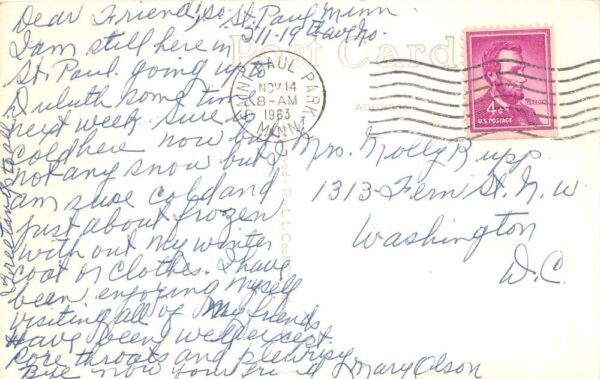 Dear Friend, So. St. Paul Minn
311-19th Ave, No.
I am still here in
St. Paul. going up to
Duluth some time
next week. Sure is
cold here now but
not any snow but I
am sure cold and
just about frozen
with out my winter
coat or clothes. I have
been enjoying myself
visiting all of my friends
Have been well except
sore throats and pleurisy
Bye now your friend Mary Olson
Greetings to all
Post Card
SAINT PAUL PARK
NOV 14
8-AM
1963
MINN
LINCOLN
4¢
U.S. POSTAGE
Mrs. Molly Rupp
1313 Fern St. N.W.
Washington
D.C.